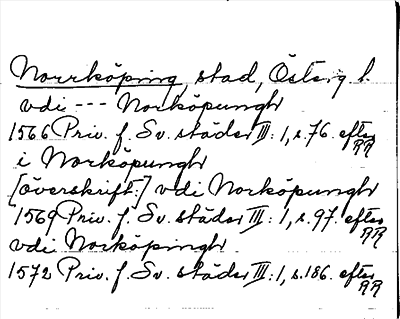 Norrköping, stad, Österg. l.
vdi --- Norköpungh
1566 Priv. f. Sv. städer III: 1, s. 76. efter RR
i Norköpungh
[överskrift:] vdi Norköpungh
1569 Priv. f. Sv. städer III: 1, s. 97. efter RR
vdi Norköpingh.
1572 Priv. f. Sv. städer III: 1, s. 186. efter RR